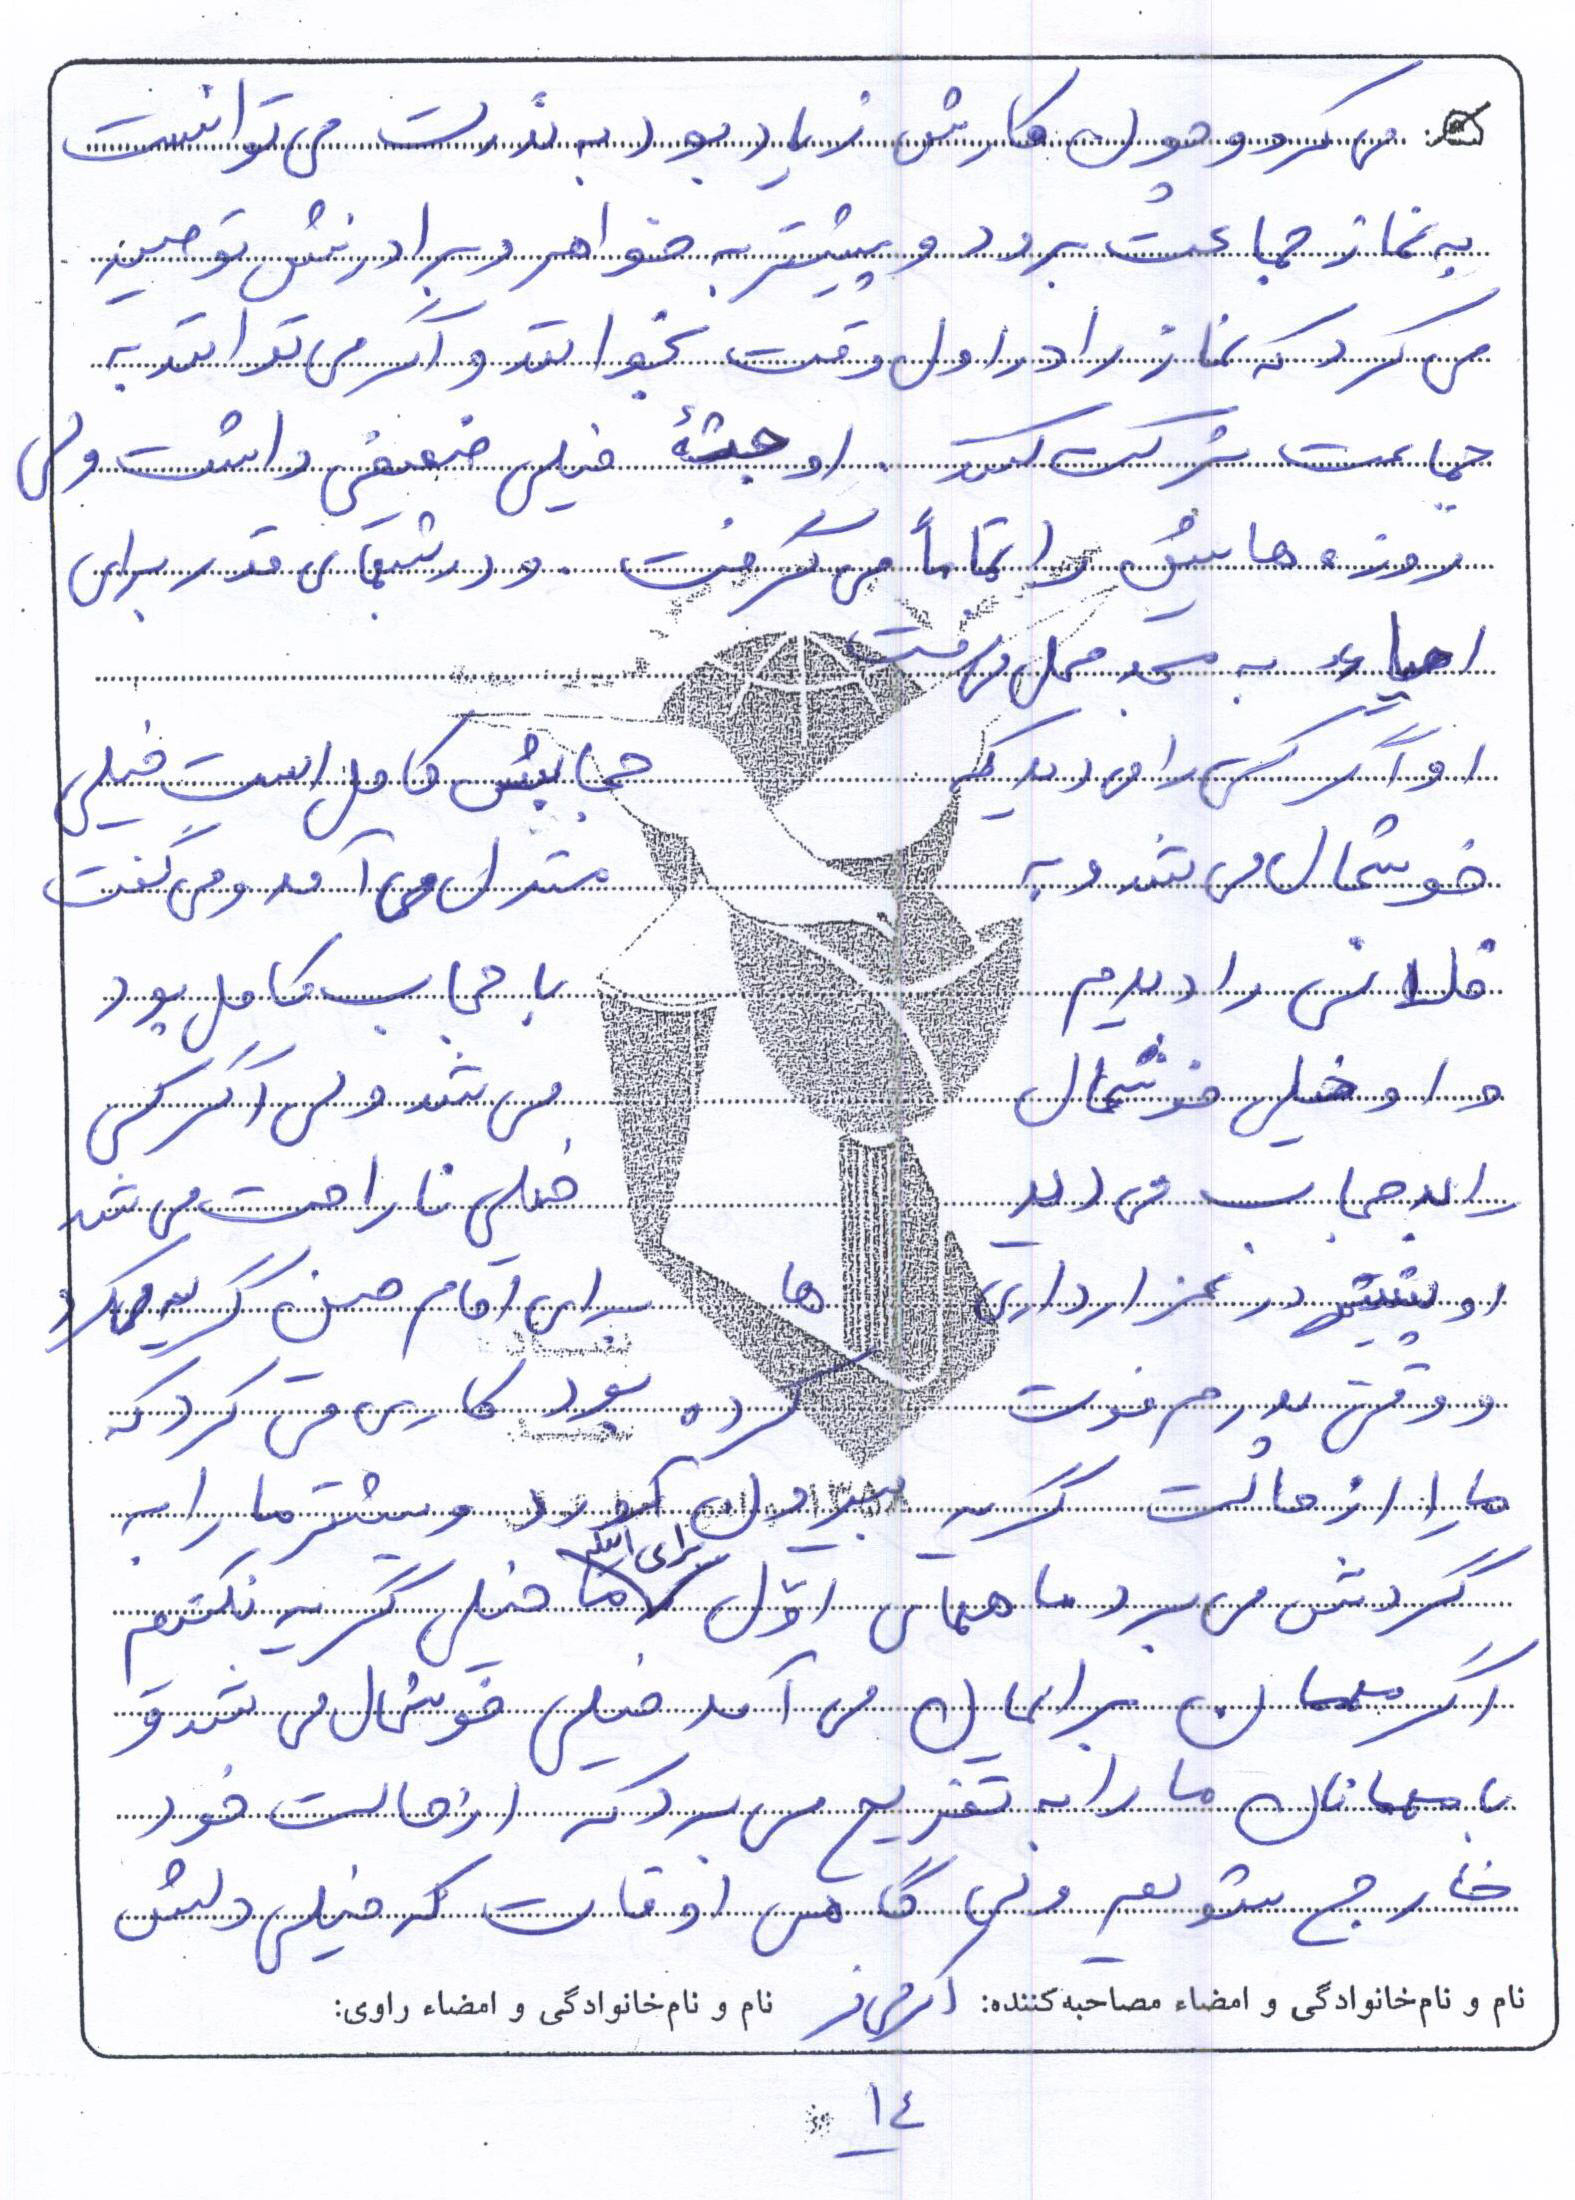 می کرد و چون کارش زیاد بود به ندرت می توانست
به نماز جماعت برود و بیشتر به خواهر و برادرنش توصیه
می کرد که نماز را در اول وقت بخوانند و اگر می توانند به
جماعت شرکت کنند . او جثهٔ خیلی ضعیفی داشت ولی
روزه هایش را تماماً می گرفت . و در شبهای قدر برای
احیاء به مسجد محل می رفت
او اگر کسی را می دید که حجابش کامل است خیلی
خوشحال می شد و به منزل می آمد و می گفت
فلانی را دیدم با حجاب کامل بود
و او خیلی خوشحال می شد ولی اگر کسی
را بد حجاب می دید خیلی ناراحت می شد
او بیشتر در عزاداری ها برای امام حسن گریه میکرد
و وقتی پدرم فوت کرده بود کاری می کرد که
ما را از حالت گریه بیرون آورد و بیشتر ما را به
گردش می برد ماههای اوّل برای اینکه ما خیلی گریه نکنیم
اگر مهمان برایمان می آمد خیلی خوشحال می شد و
با مهمانان ما را به تفریح می برد که از حالت خود
خارج شویم ولی گاهی اوقات که خیلی دلش
نام و نام خانوادگی و امضاء مصاحبه کننده: نام و نام خانوادگی و امضاء راوی:
١٤